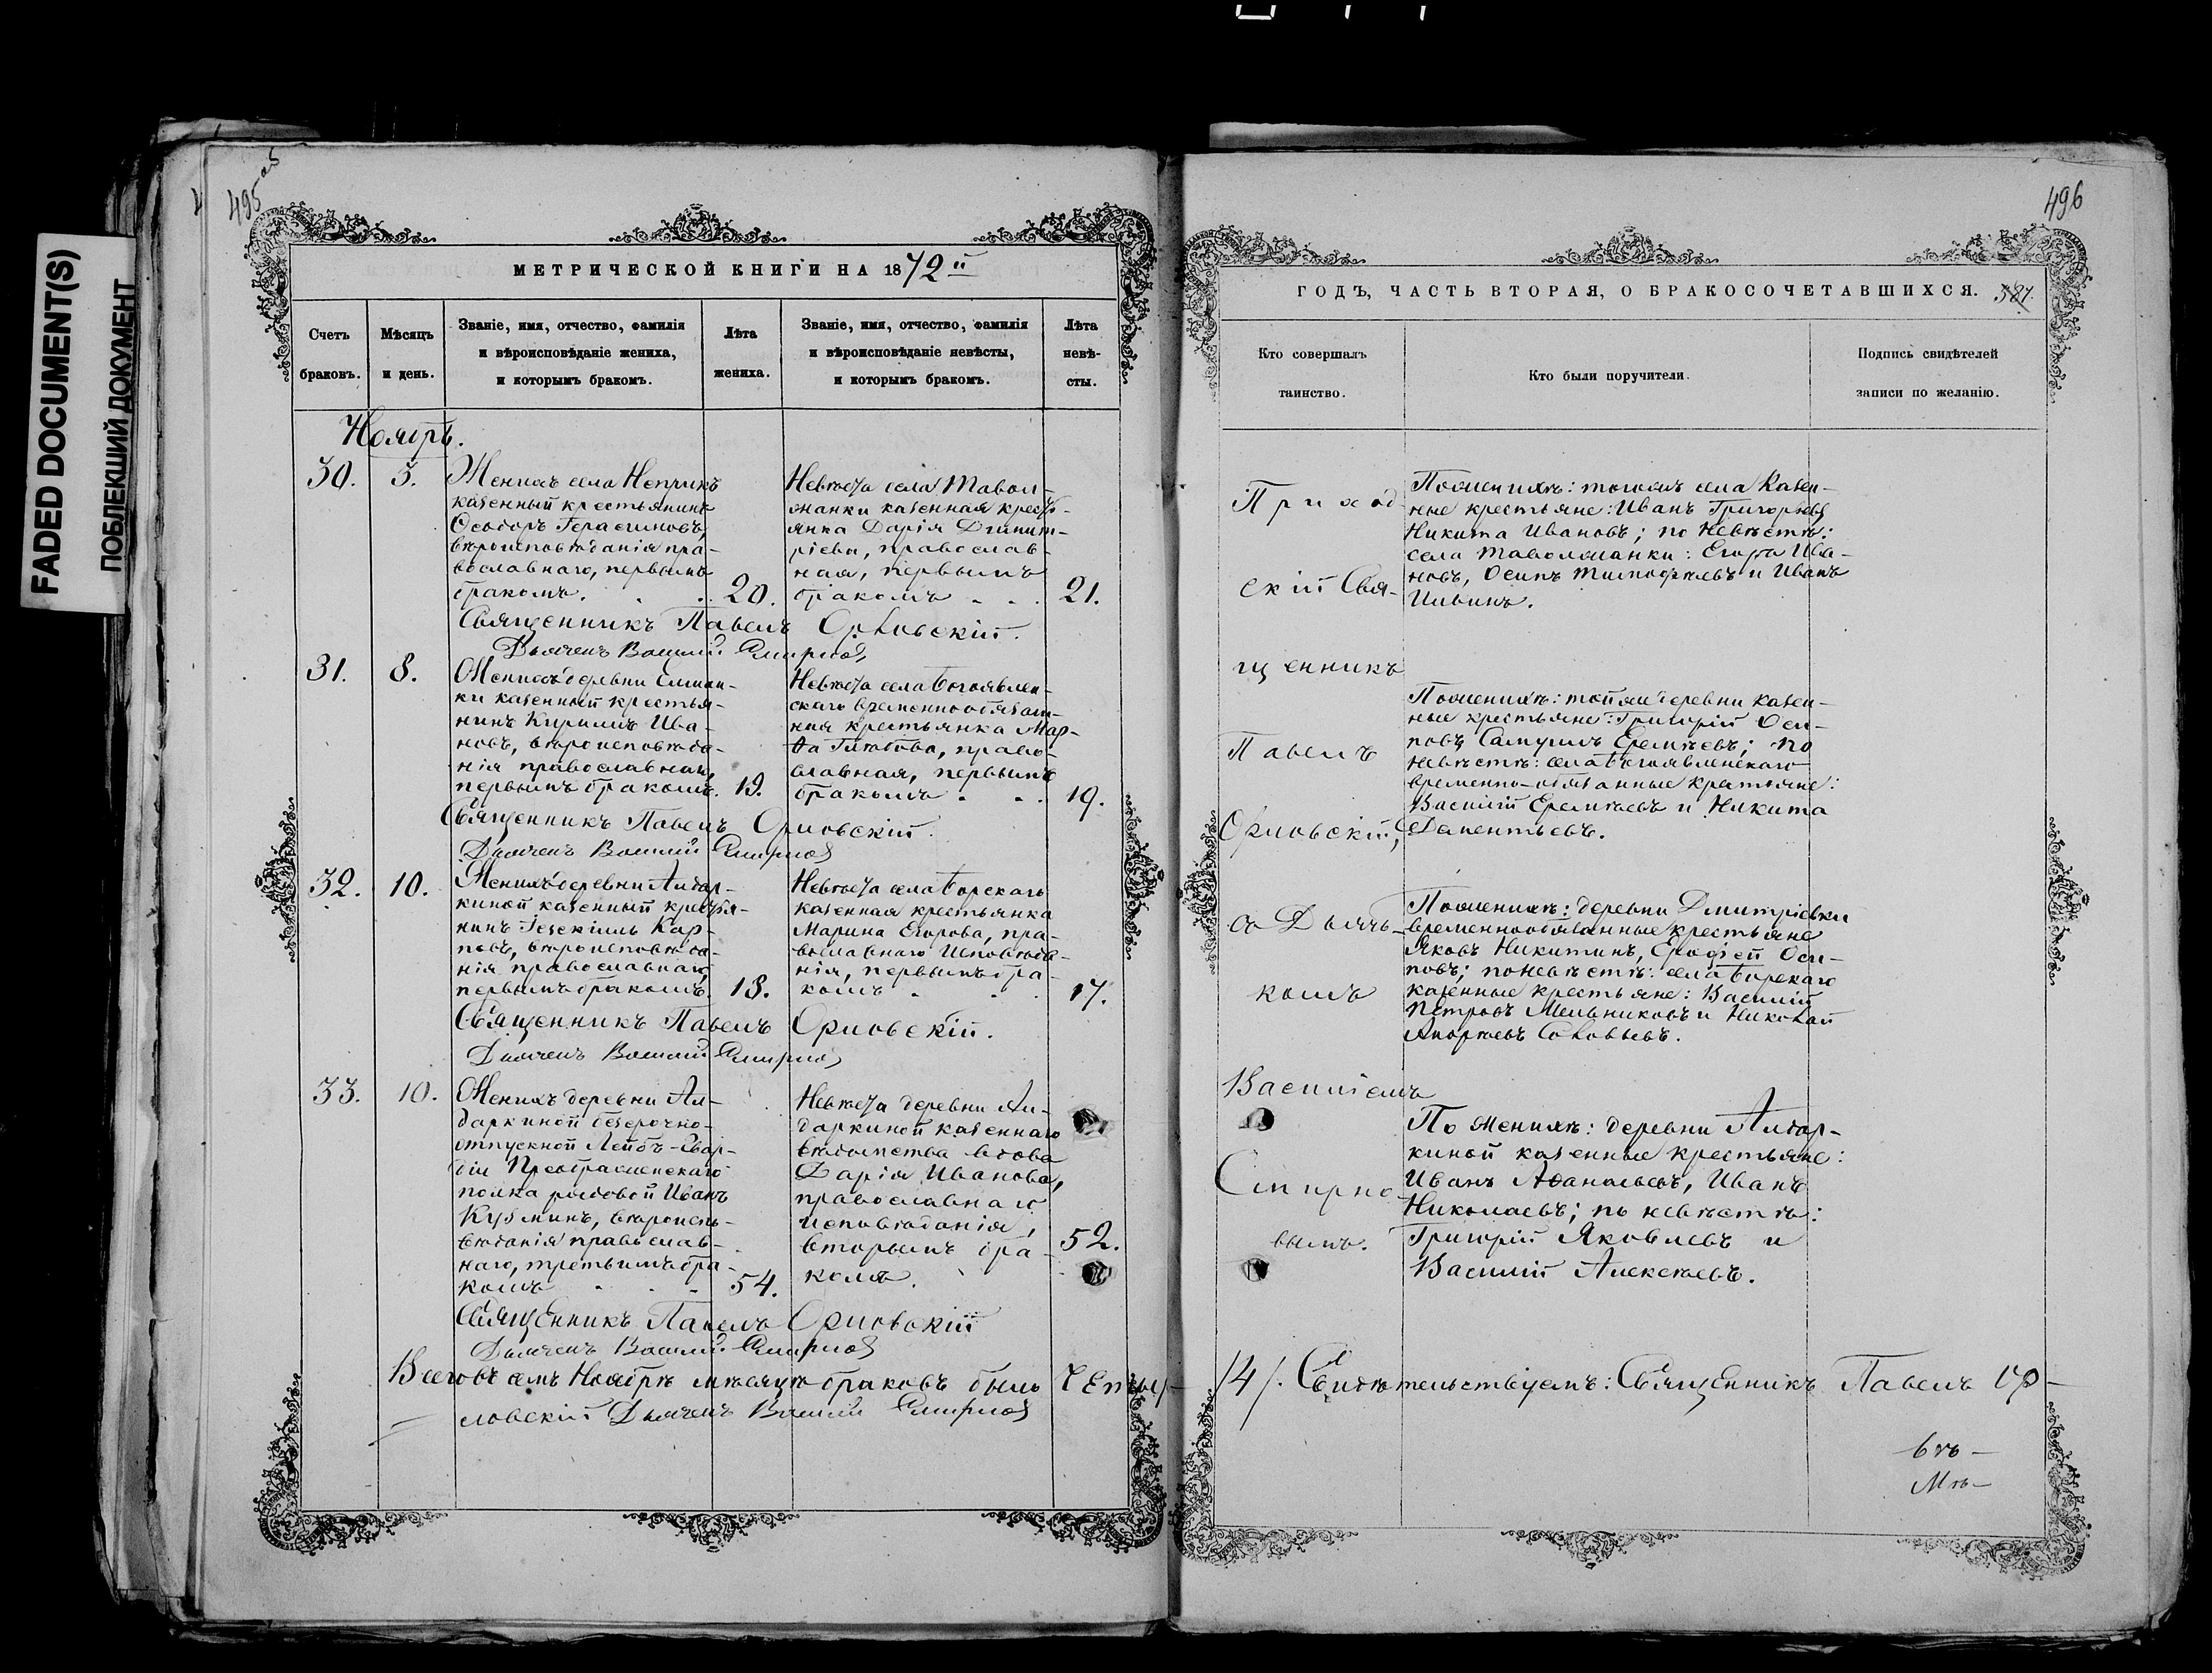 FADED DOCUMENT(S)
ПОБЛЕКШИЙ ДОКУМЕНТ
495 об
МЕТРИЧЕСКОЙ КНИГИ НА 1872й
Счетъ браковъ.
Мѣсяцъ и день.
Званіе, имя, отчество, фамилія
и вѣроисповѣданіе жениха,
и которымъ бракомъ.
Лѣта жениха.
Званіе, имя, отчество, фамилія
и вѣроисповѣданіе невѣсты,
и которымъ бракомъ.
Лѣта невѣ-
сты.
Ноябрь.
30.
3.
Женихъ села Неприкъ
казенный крестьянинъ
Ѳеодоръ Герасимовъ,
вѣроисповѣданія пра-
вославнаго, первымъ
бракомъ.
20.
Невѣста села Тавол-
жанки казенная кресть-
янка Дарія Димит-
ріева, православ-
ная, первымъ
бракомъ
21.
Священникъ Павелъ Орловскій.
Дьячекъ Василій Смирновъ
31.
8.
Женихъ деревни Елшан-
ки казенный крестья-
нинъ Кириллъ Ива-
новъ, вѣроисповѣда-
нія православнаго,
первымъ бракомъ.
19.
Невѣста села Богоявлен-
скаго временнообязан-
ная крестьянка Мар-
ѳа Глѣбова, право-
славная, первымъ
бракомъ
19.
Священникъ Павелъ Орловскій.
Дьячекъ Василій Смирновъ
32.
10.
Женихъ деревни Алдар-
киной казенный крестья-
нинъ Іезекіиль Кар-
повъ, вѣроисповѣда-
нія православнаго,
первымъ бракомъ.
18.
Невѣста села Борскаго
казенная крестьянка
Марина Егорова, пра-
вославнаго исповѣда-
нія, первымъ бра-
комъ
17.
Священникъ Павелъ Орловскій.
Дьячекъ Василій Смирновъ
33.
10.
Женихъ деревни Ал-
даркиной безсрочно-
отпускной Лейбъ-Гвар-
діи Преображенскаго
полка рядовой Иванъ
Кузминъ, вѣроиспо-
вѣданія православ-
наго, третьимъ бра-
комъ
54.
Невѣста деревни Ал-
даркиной казеннаго
вѣдомства вдова
Дарія Иванова,
православнаго
исповѣданія,
вторымъ бра-
комъ.
52.
Священникъ Павелъ Орловскій
Дьячекъ Василій Смирновъ
Всего въ семъ Ноябрѣ мѣсяцѣ браковъ было Четыре
ловскій Дьячекъ Василій Смирновъ
496
ГОДЪ, ЧАСТЬ ВТОРАЯ, О БРАКОСОЧЕТАВШИХСЯ. 587.
Кто совершалъ
таинство.
Кто были поручители.
Подпись свидѣтелей
записи по желанію.
Приход-
скій Свя-
щенникъ
Павелъ
Орловскій,
съ Дьяч-
комъ
Василіемъ
Смирно-
вымъ.
По женихѣ: тогожъ села Казен-
ные крестьяне: Иванъ Григорьевъ
Никита Ивановъ; по Невѣстѣ:
села Таволжанки: Егоръ Ива-
новъ, Осипъ Тимофѣевъ и Иванъ
Ильинъ.
По женихѣ: той же деревни казен-
ные крестьяне: Григорій Оси-
повъ, Самуилъ Еремѣевъ; по
Невѣстѣ: села Богоявленскаго
временно-обязанные крестьяне:
Василій Еремѣевъ и Никита
Дементьевъ.
По женихѣ: деревни Дмитріевки
временнообязанные крестьяне
Яковъ Никитинъ, Ерофей Оси-
повъ; по невѣстѣ: села Борскаго
казенные крестьяне: Василій
Петровъ Мельниковъ и Николай
Андреевъ Соловьевъ.
По женихѣ: деревни Алдар-
киной казенные крестьяне:
Иванъ Аѳанасьевъ, Иванъ
Николаевъ; по невѣстѣ:
Григорій Яковлевъ и
Василій Алексѣевъ.
/4/. Свидѣтельствуемъ: Священникъ Павелъ Ор-